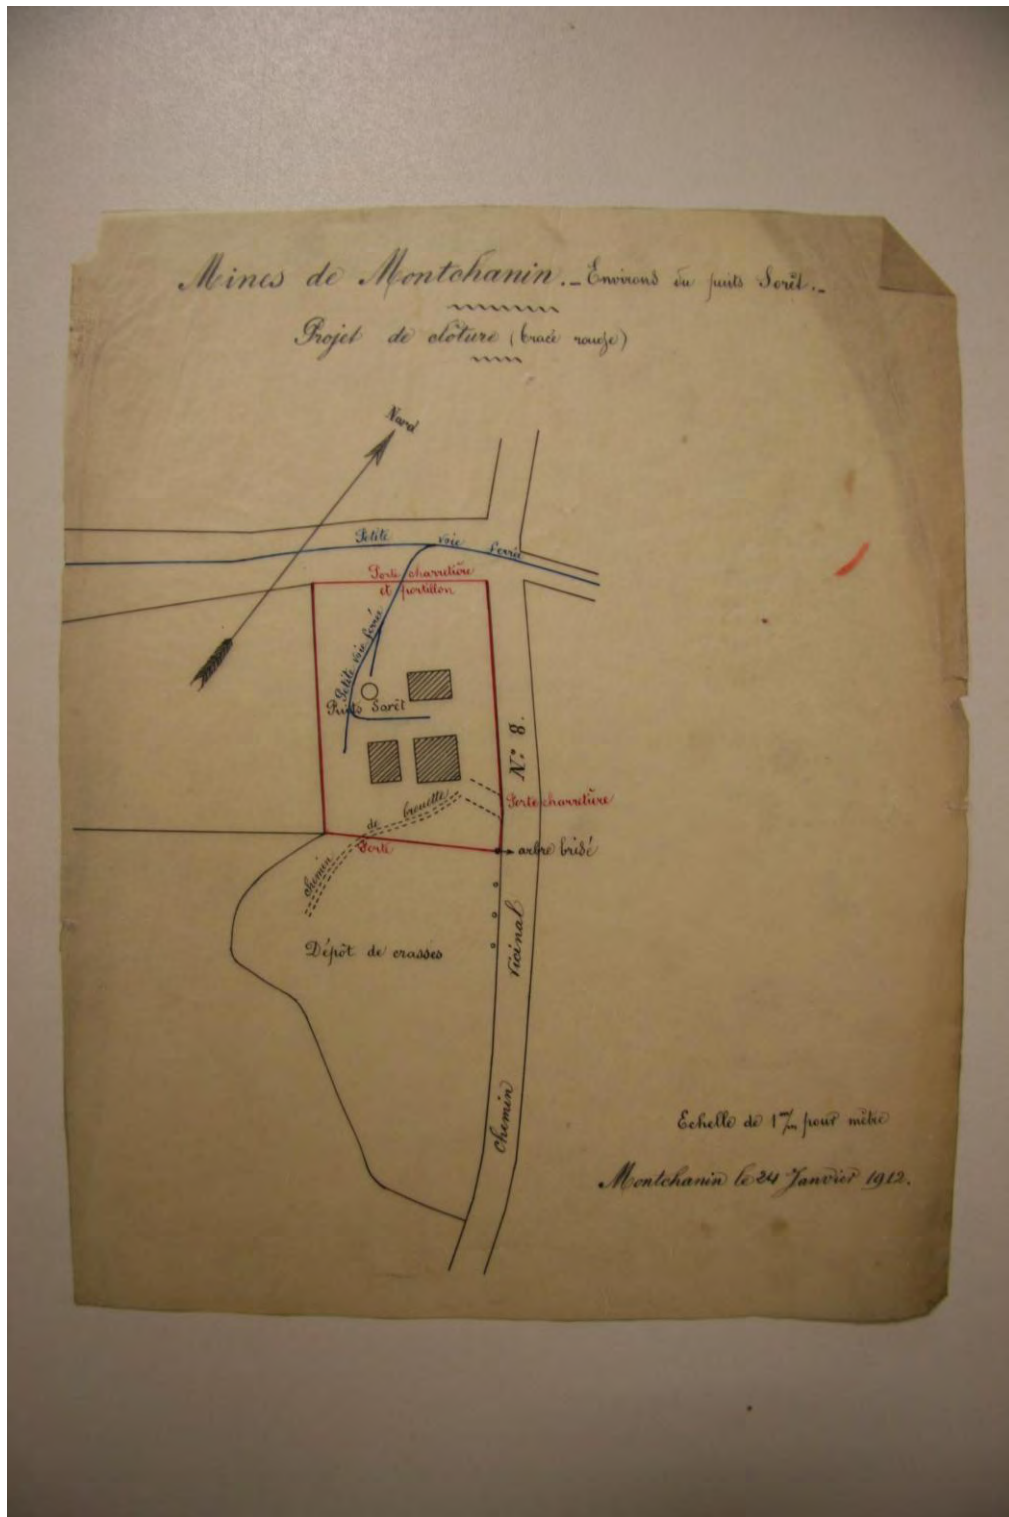 Mines de Montchanin. - Environs du puits Sorêt. -
Projet de clôture (tracé rouge)
Nord
Petite voie ferrée
Porte charretière
et portillon
Petite voie ferrée
Puits Sorêt
N.º 8.
Porte charretière
chemin de brouette
Porte
arbre brisé
Dépôt de crasses
Vicinal
Chemin
Echelle de 1 m/m pour mètre
Montchanin le 24 Janvier 1912.